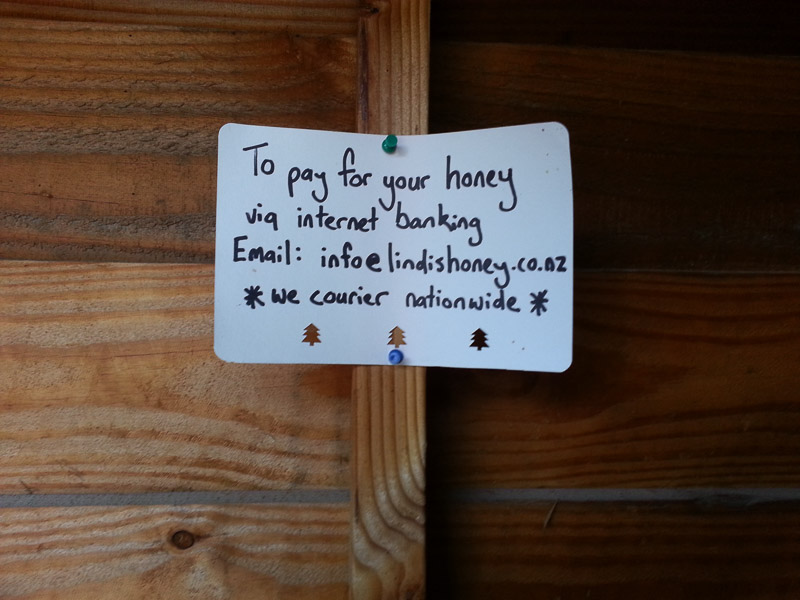 To pay for your honey
via internet banking
Email: info@lindishoney.co.nz
* we courier nationwide *